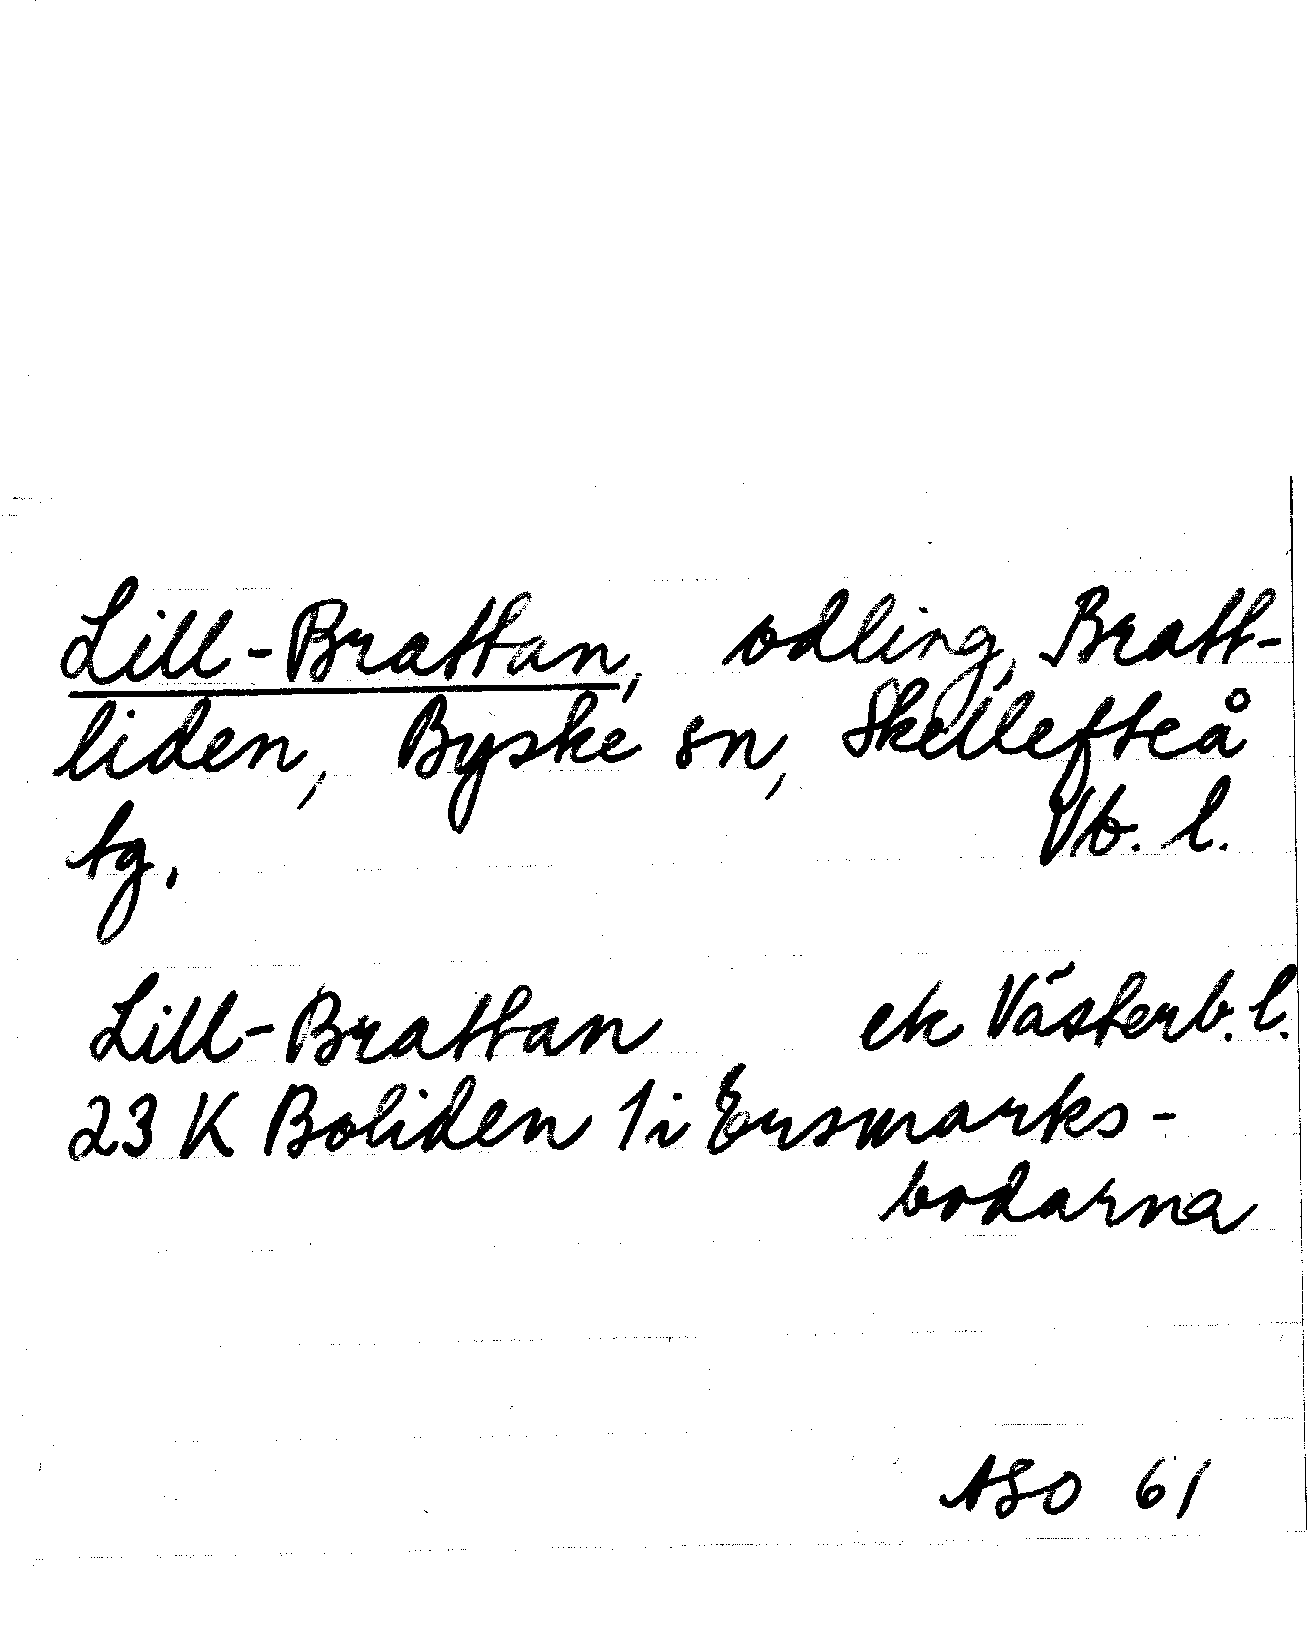 Lill-Brattan, odling, Bratt-
liden, Byske sn, Skellefteå
tg. Vb. l.
Lill-Brattan ek Västerb. l.
23 K Boliden 1i Ersmarks-
bodarna
ASO 61